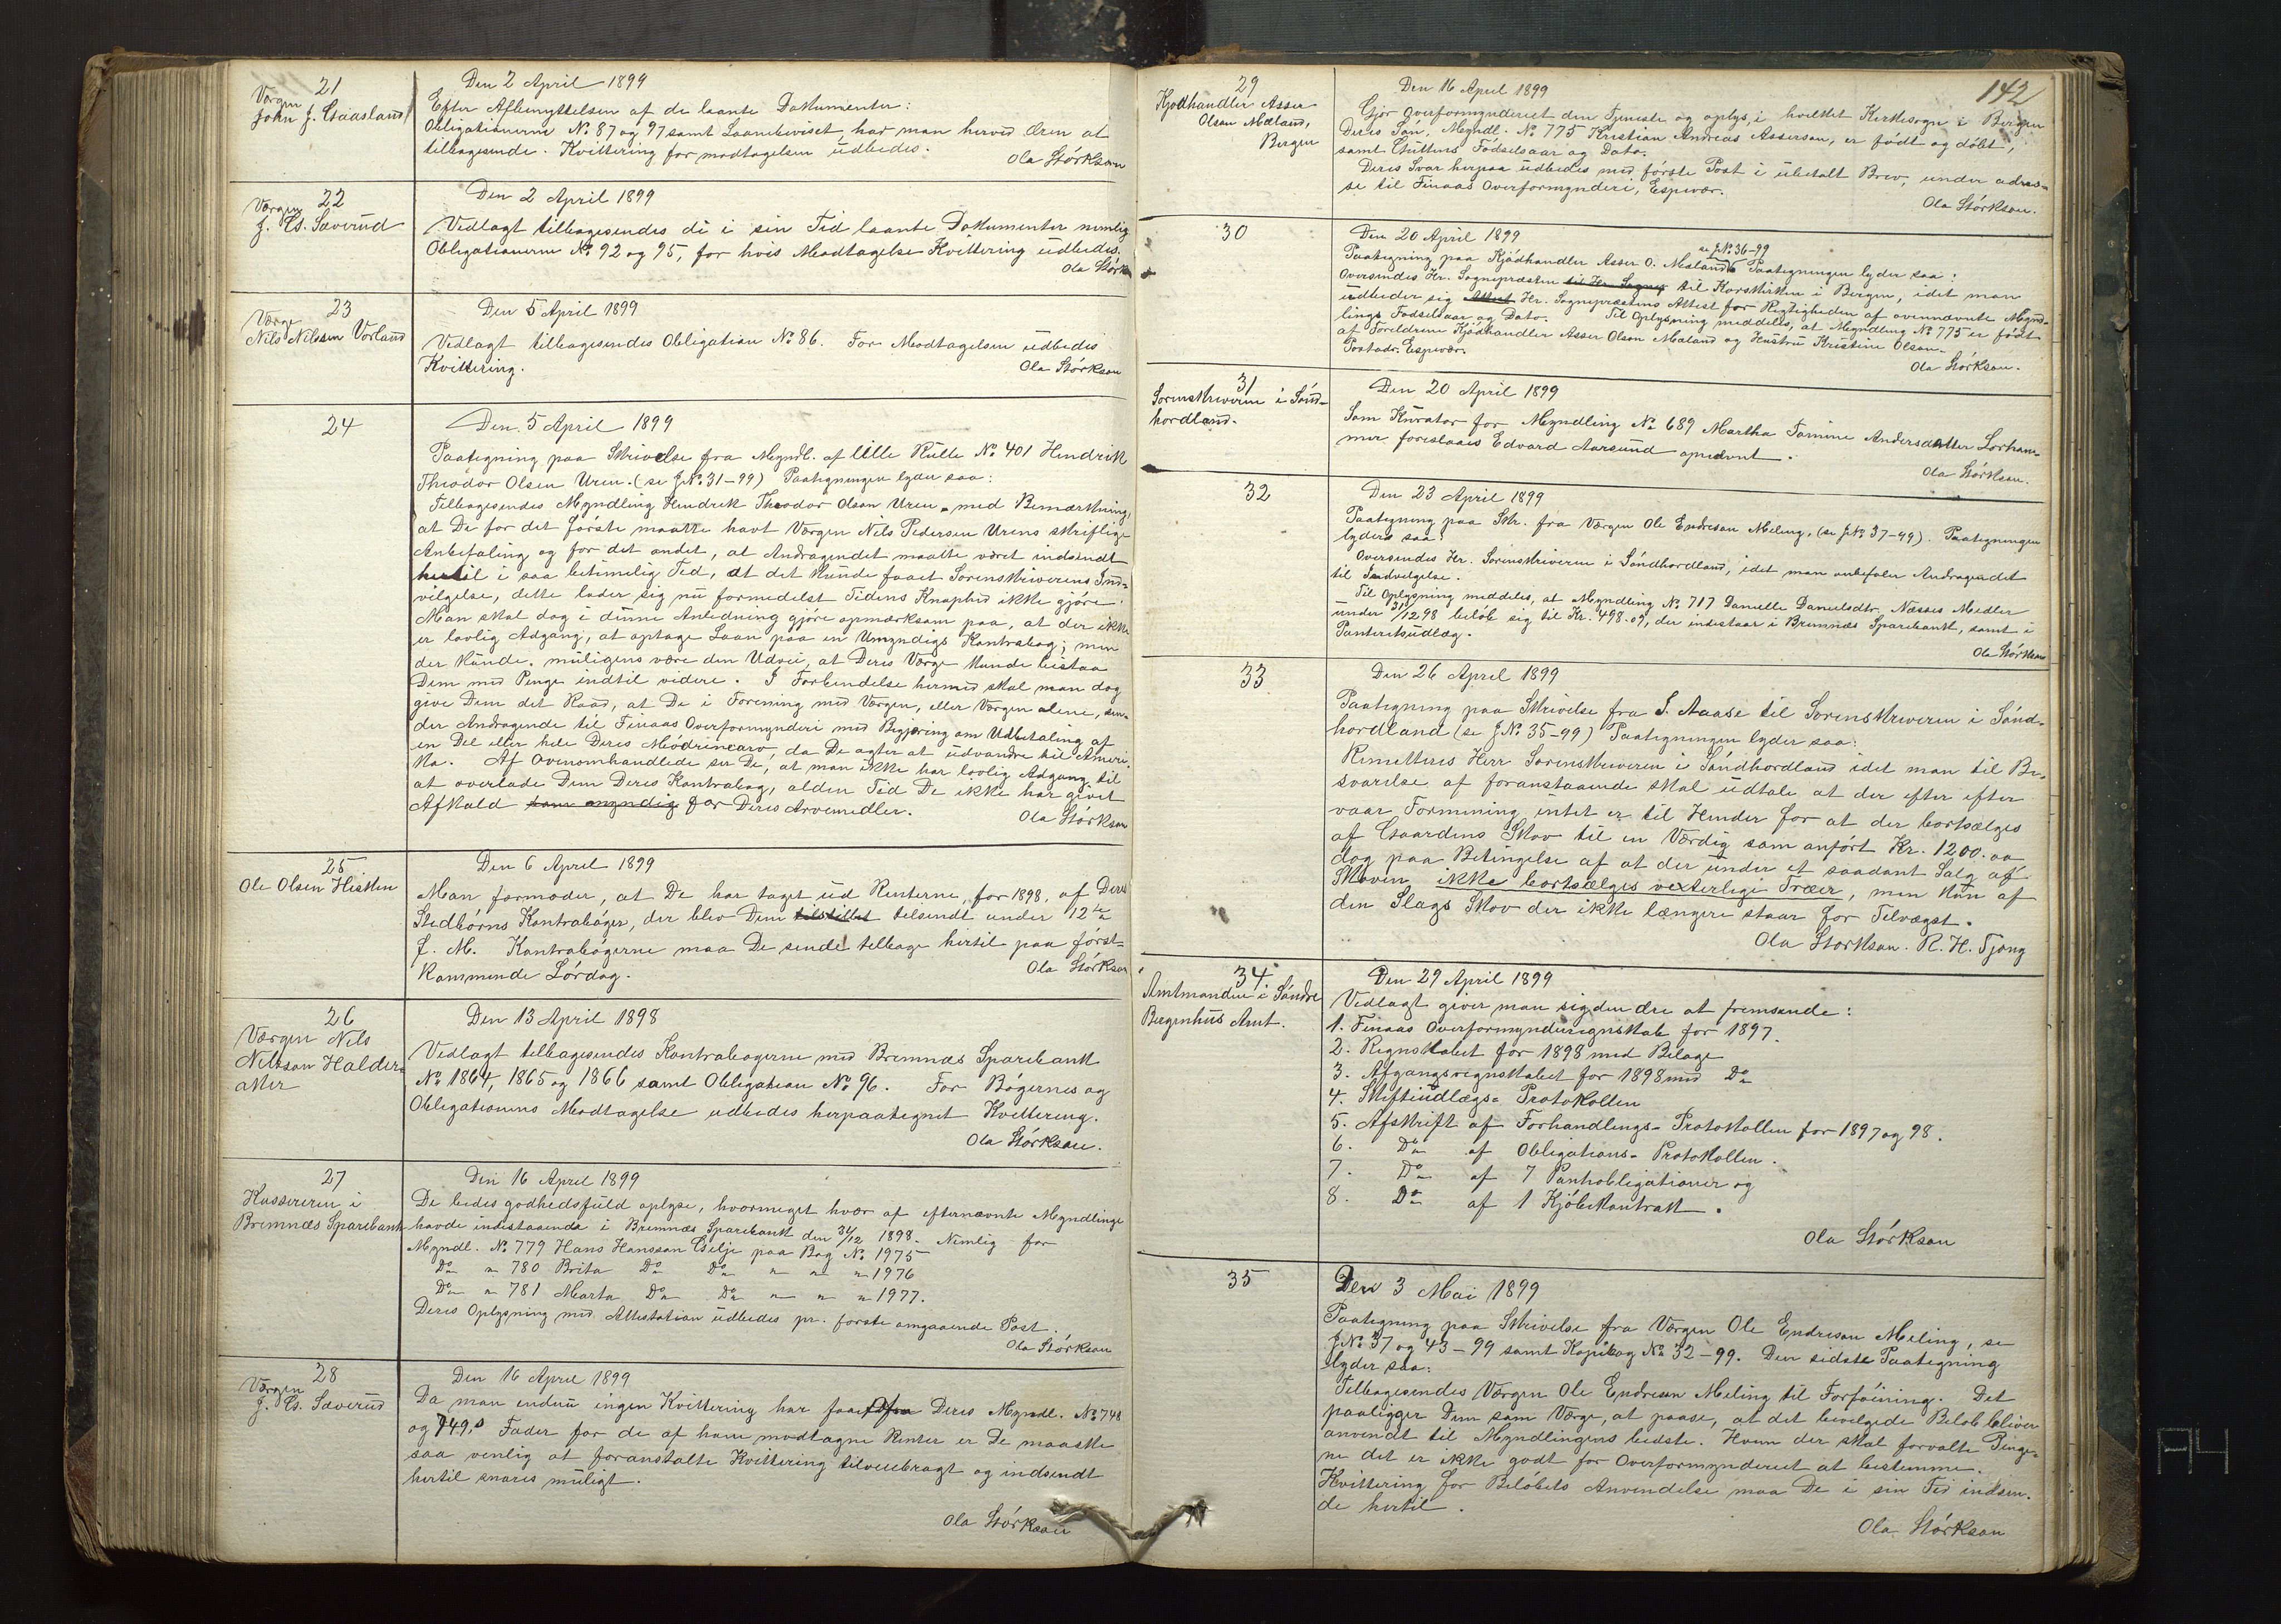 21
Værgen
John J. Gaasland
Den 2 April 1899
Efter Afbenyttelsen af de laante Dokumenter:
Obligationerne No. 87 og 97 samt Laanebeviset, har man herved Æren at
tilbagesende. Kvittering for modtagelsen udbedes.
Ola Størkson
22
Værgen
J. Gs. Sæverud
Den 2 April 1899
Vedlagt tilbagesendes de i sin Tid laante Dokumenter nemlig
Obligationerne No 92 og 95, for hvis Modtagelse Kvittering udbedes.
Ola Størks
23
Værge
Nils Nilssen Vorland
Den 5 April 1899
Vedlagt tilbagesendes Obligation No 86. For Modtagelsen udbedes
Kvittering.
Ola Størkson
24
Den 5 April 1899
Paategning paa Skrivelse fra Myndl. af lille Rulle No. 401 Hendrik
Theodor Olsen Uren. (se J.No. 31-99) Paategningen lyder saa:
Tilbagesendes Myndling Hendrik Theodor Olson Uren med Bemærkning,
at De for det første maatte havt Værgen Nils Pedersen Urens skriftlige
Anbefaling og for det andet, at Andragendet maatte været indsendt
hertil i saa betimelig Tid, at det kunde faaet Sorenskriverens Ind-
vilgelse, dette lader sig nu formedelst Tidens Knaphed ikke gjøre.
Man skal dog i denne Anledning gjøre opmærksom paa, at der ikke
er lovlig Adgang, at optage Laan paa en Umyndigs Kontrabog; men
der kunde muligens være den Udvei, at Deres Værge kunde bistaa
Dem med Penge indtil videre. I Forbindelse hermed skal man dog
give Dem det Raad, at De i Forening med Værgen, eller Værgen alene, sen-
der Andragende til Finaas Overformynderi med Begjæring om Udbetaling af
en Del eller hele Deres Mødrenearv, da De agter at udvandre til Ameri-
ka. Af Ovenomhandlede ser De, at man ikke har lovlig Adgang til
at overlade Dem Deres Kontrabog, alden Tid De ikke har givet
Afkald som myndig for Deres Arvemidler.
Ola Størkson
25
Ole Olsen Hisken
Den 6 April 1899
Man formoder, at De har taget ud Renterne, for 1898, af Deres
Stedbørns Kontrabøger, der blev Dem tilstillet tilsendt under 12te
f. M. Kontrabøgerne maa De sende tilbage hertil paa først-
kommende Lørdag.
Ola Størkson
26
Værgen Nils
Nilsson Halder-
aker
Den 13 April 1898
Vedlagt tilbagesendes Kontrabøgerne med Bremnæs Sparebank
No 1864, 1865 og 1866 samt Obligation No 96. For Bøgernes og
Obligationens Modtagelse udbedes herpaategnet Kvittering.
Ola Størkson.
27
Kassereren i
Bremnæs Sparebank
Den 16 April 1899
De bedes godhedsfuld oplyse, hvormeget hver af efternævnte Myndlinge
havde indestaaende i Bremnæs Sparebank den 31/12 1898. Nemlig for
Myndl. No 779 Hans Hansson Gilje paa Bog No 1975
Do " 780 Brita Do Do " " " 1976
Do " 781 Marta Do Do " " " 1977.
Deres Oplysning med Attestation udbedes pr. første omgaaende Post.
Ola Størkson
28
Værgen
J. Gs. Sæverud
Den 16 April 1899
Da man endnu ingen Kvittering har faaet fra Deres Myndl. No 748
og 749,s Fader for de af ham modtagne Renter er De maaske
saa venlig at foranstalte Kvittering tilveiebragt og indsendt
hertil snares muligt.
Ola Størkson
142
29
Kjødhandler Asser
Olson Mæland,
Bergen
Den 16 April 1899
Gjør Overformynderiet den Tjeneste og oplys, i hvilket Kirkesogn i Bergen
Deres Søn, Myndl. No 775 Kristian Andreas Asserson, er født og døbt,
samt Guttens Fødselsaar og Dato.
Deres Svar herpaa udbedes med første Post i ubetalt Brev, under adres-
se til Finaas Overformynderi, Espevær.
Ola Størkson.
30
Den 20 April 1899
se J.No. 36-99
Paategning paa Kjødhandler Asser O. Mælands Paategningen lyder saa:
Oversendes Hr. Sognepræsten til Hr. Sognep til Korskirken i Bergen, idet man
udbeder sig Attest Hr. Sognepræstens Attest for Rigtigheden af ovennævnte Mynd-
lings Fødselsaar og Dato. Til Oplysning meddeles, at Myndling No 775 er født
af Forældrene Kjødhandler Asser Olson Mæland og Hustru Kristine Olson.
Postadr. Espevær.
Ola Størkson.
31
Sorenskriveren i Sønd-
hordland.
Den 20 April 1899
Som Kurator for Myndling No 689 Martha Tomine Andersdatter Lorham-
mer foreslaaes Edvard Aarsund opnævnt.
Ola Størkson.
32
Den 23 April 1899
Paategning paa Skr. fra Værgen Ole Endreson Meling, (se J.No 37-99). Paategningen
lyder saa:
Oversendes Hr. Sorenskriveren i Søndhordland, idet man anbefaler Andragendet
til Indvelgelse.
Til Oplysning meddeles, at Myndling No 717 Danielle Danielsdtr. Næsses Midler
under 31/12 98 beløb sig til Kr. 498.09, der indestaar i Bremnæs Sparebank, samt i
Panteretsudlæg.
Ola Størkson
33
Den 26 April 1899
Paategning paa Skrivelse fra S. Aase til Sorenskriveren i Sønd-
hordland (se J.No 35-99) Paategningen lyder saa:
Remitteres Herr Sorenskriveren i Søndhordland idet man til Be-
svarelse af foranstaaende skal udtale at der efter efter
vaar Formening intet er til Hinder for at der bortsælges
af Gaardens Skov til en Værdig som anført Kr. 1200.oo
dog paa Betingelse af at der under et saadant Salg af
Skoven ikke bortsælges vexterlige Træer, men kun af
den Slags Skov der ikke længere staar for Tilvægst.
Ola Størkson. R. H. Tjong
34.
Amtmanden i Søndre
Bergenhus Amt.
Den 29 April 1899
Vedlagt giver man sig den ære at fremsende:
1. Finaas Overformynderregnskab for 1897.
2. Regnskabet for 1898 med Bilage
3. Afgangsregnskabet for 1898 med Do
4. Skifteudlægs-Protokollen
5. Afskrift af Forhandlings-Protokollen for 1897 og 98.
6. Do af Obligations-Protokollen.
7. Do af 7 Panteobligationer og
8. Do af 1 Kjøbekontrakt.
Ola Størkson
35
Den 3 Mai 1899
Paategning paa Skrivelse fra Værgen Ole Endreson Meling, se
J.No 37 og 43-99 samt Kopibog No 32-99. Den sidste Paategning
lyder saa:
Tilbagesendes Værgen Ole Endreson Meling til Forføining. Det
paaligger Dem som Værge, at paase, at det bevelgede Beløb bliver
anvendt til Myndlingens bedste. Hvem der skal forvalte Penge-
ne det er ikke godt for Overformynderiet at bestemme.
Kvittering for Beløbets Anvendelse maa De i sin Tid indsen-
de hertil.
Ola Størkson